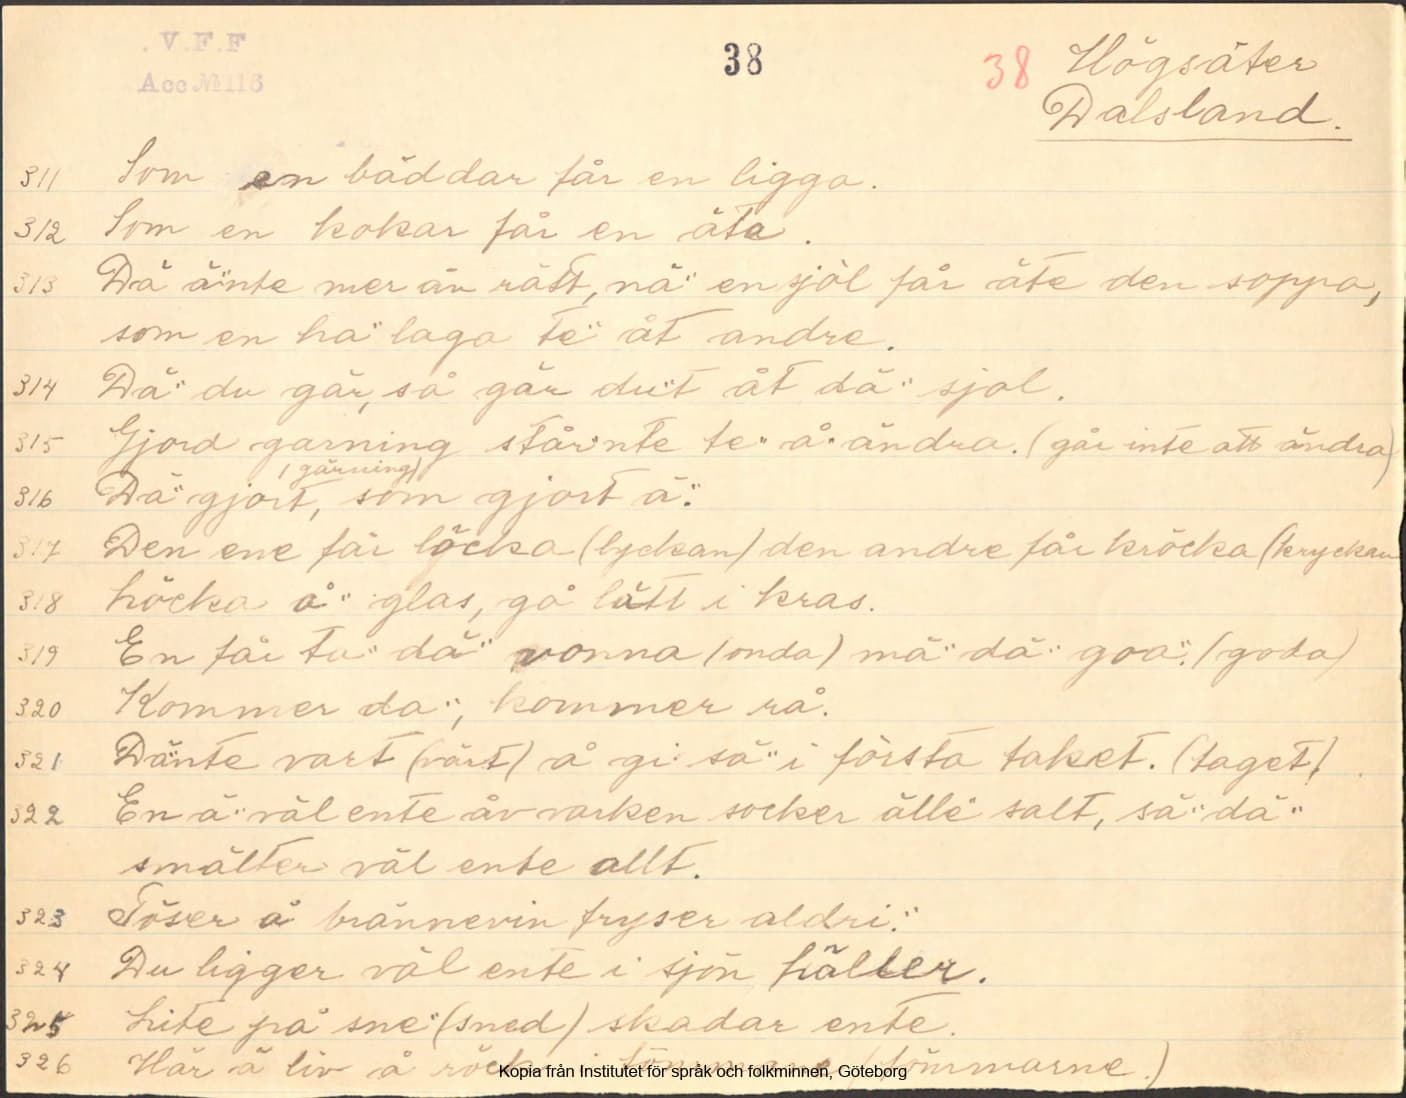 V.F.F
Acc № 116
38
38 Högsäter
Dalsland.
311 Som en bäddar får en ligga.
312 Som en kokar får en äta.
313 Dä ä"nte mer än rätt, nä" en sjöl får äte den soppa,
som en ha" laga te" åt andre.
314 Dä" du gär, så gär du"t åt dä" sjöl.
315 Gjord garning står"nte te" å" ändra. (går inte att ändra)
(gärning)
316 Dä" gjort, som gjort ä".
317 Den ene får löcka (lyckan) den andre får kröcka (kryckan
318 Löcka å" glas, gå lätt i kras.
319 En får ta" dä" vonna (onda) mä" dä" goa". (goda)
320 Kommer da", kommer rå.
321 Dä"nte vart (värt) å gi sä" i första taket. (taget)
322 En ä" väl ente åv varken socker älle" salt, så" dä"
smälter väl ente allt.
323 Töser å brännevin fryser aldri".
324 Du ligger väl ente i sjön häller.
325 Lite på sne" (sned) skadar ente.
326 Här ä liv å i (tömmarne.)
Kopia från Institutet för språk och folkminnen, Göteborg